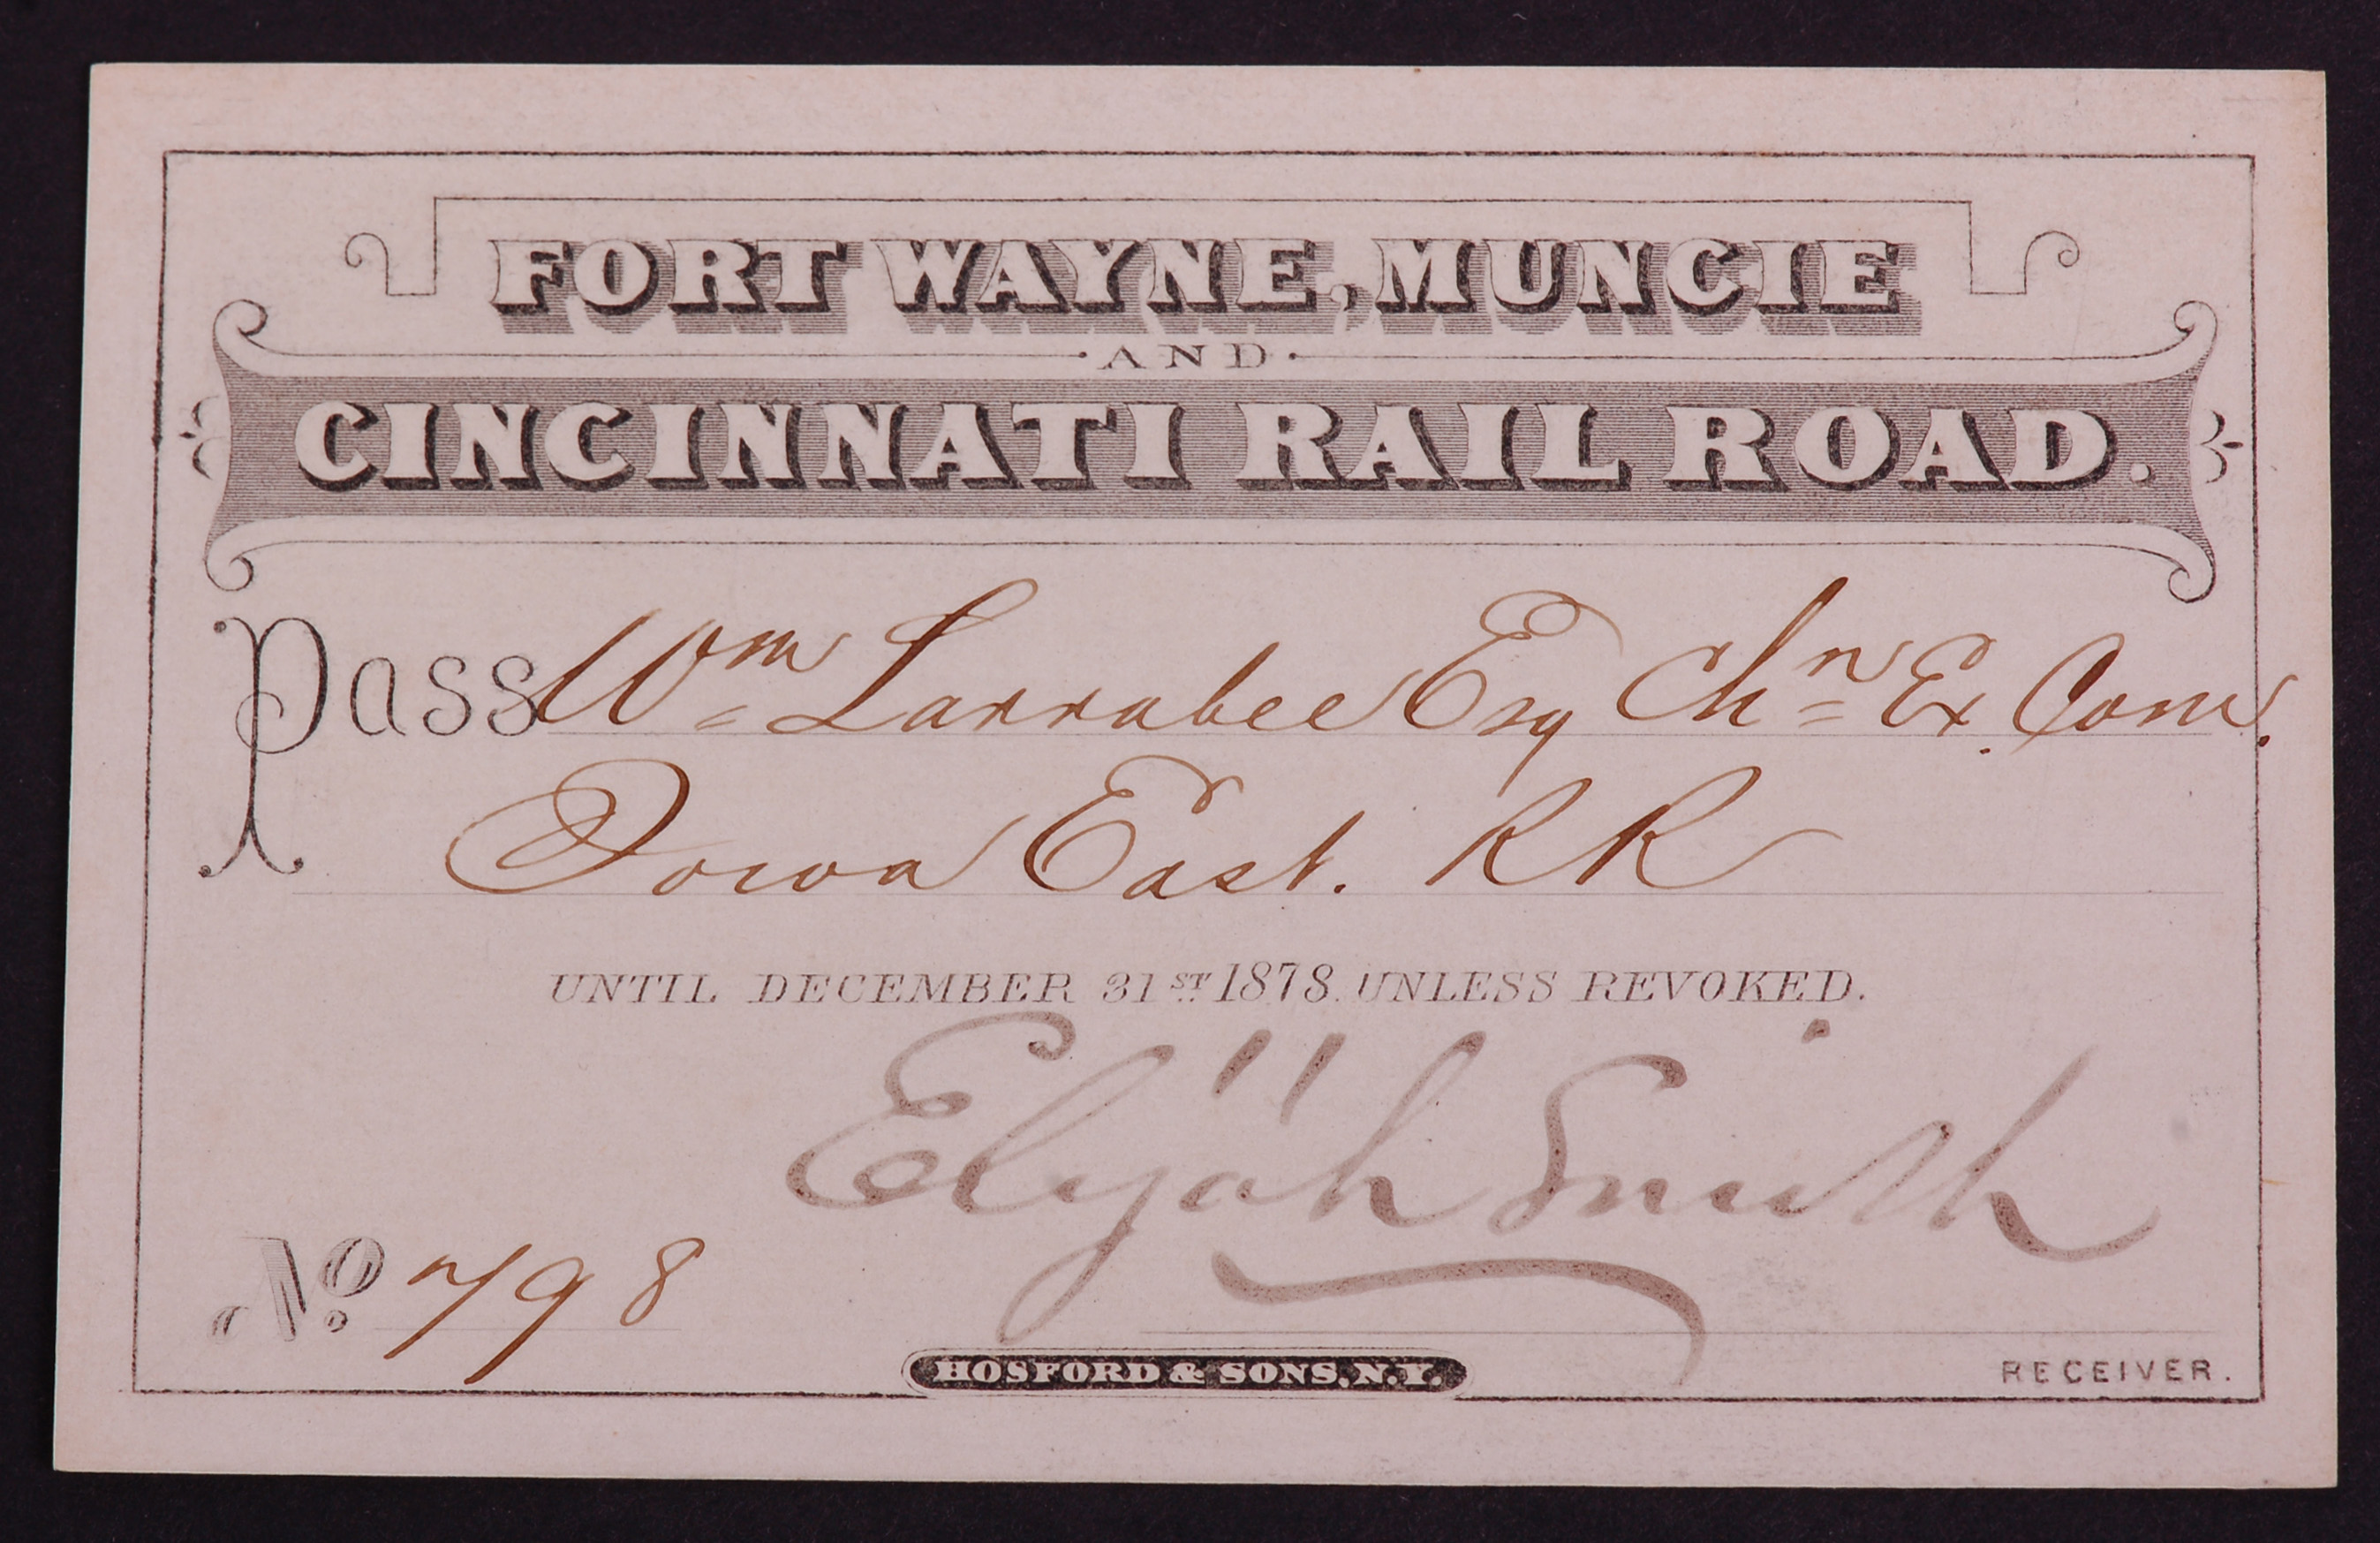 FORT WAYNE, MUNCIE
·AND·
CINCINNATI RAIL ROAD.
Pass Wm Larrabee Esq Chn Ex. Com.
Iowa East. RR
UNTIL DECEMBER 31ST 1878. UNLESS REVOKED.
Elijah Smith
No. 798
HOSFORD & SONS, N.Y.
RECEIVER.